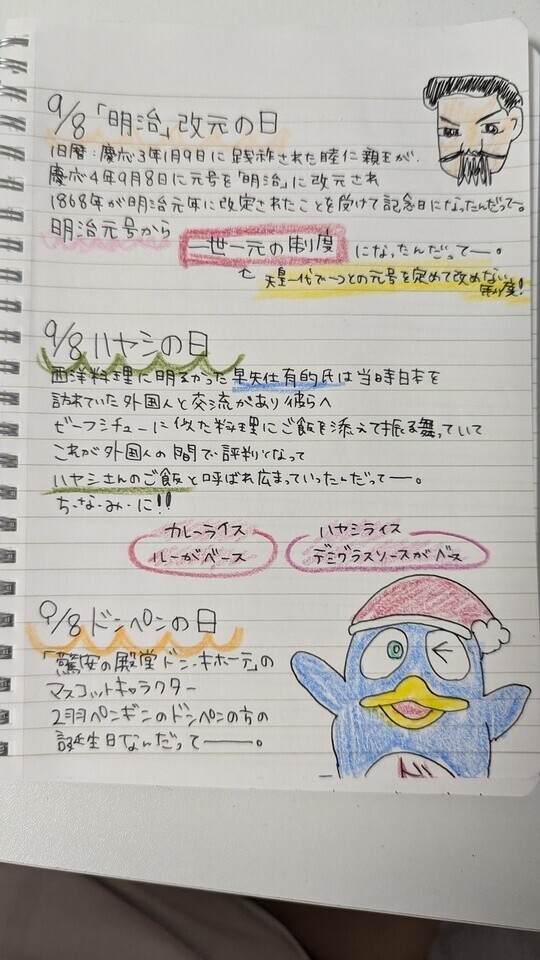 9/8「明治」改元の日
旧暦:慶応3年1月9日に践祚された睦仁親王が、
慶応4年9月8日に元号を「明治」に改元され
1868年が明治元年に改定されたことを受けて記念日になったんだって。
明治元号から 一世一元の制度 になったんだってー。
天皇一代で一つの元号を定めて改めない制度!
9/8 ハヤシの日
西洋料理に明るかった早矢仕有的氏は当時日本を
訪れていた外国人と交流があり彼らへ
ビーフシチューに似た料理にご飯を添えて振る舞っていて
これが外国人の間で評判となって
ハヤシさんのご飯と呼ばれ広まっていったんだってー。
ち・な・み・に!!
カレーライス ハヤシライス
ルーがベース デミグラスソースがベース
9/8 ドンペンの日
「驚安の殿堂 ドン・キホーテ」の
マスコットキャラクター
2羽ペンギンのドンペンの方の
誕生日なんだってー。